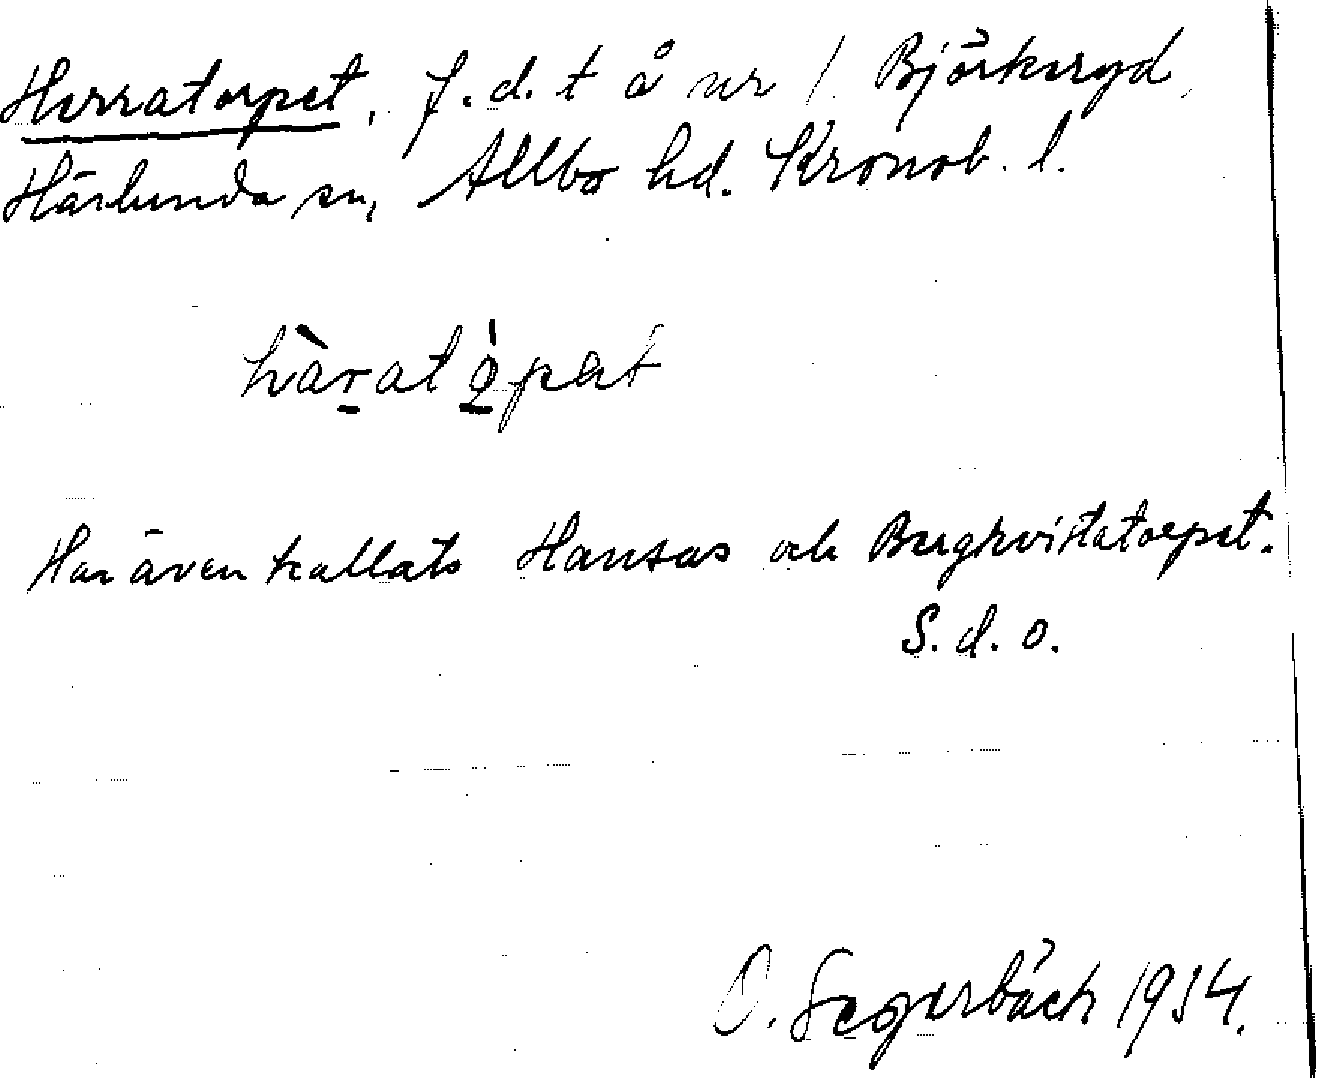 Herratorpet, f. d. t å nr 1 Björkeryd,
Härlunda sn, Allbo hd. Kronob. l.
hàratópat
Har även kallats Hansas och Bergkvistatorpet.
S. d. o.
O. Segerbäck 1934.